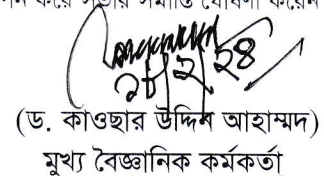 করে সভার সমাপ্তি ঘোষণা করেন
২৮/২/২৪
(ড. কাওছার উদ্দিন আহাম্মদ)
মুখ্য বৈজ্ঞানিক কর্মকর্তা